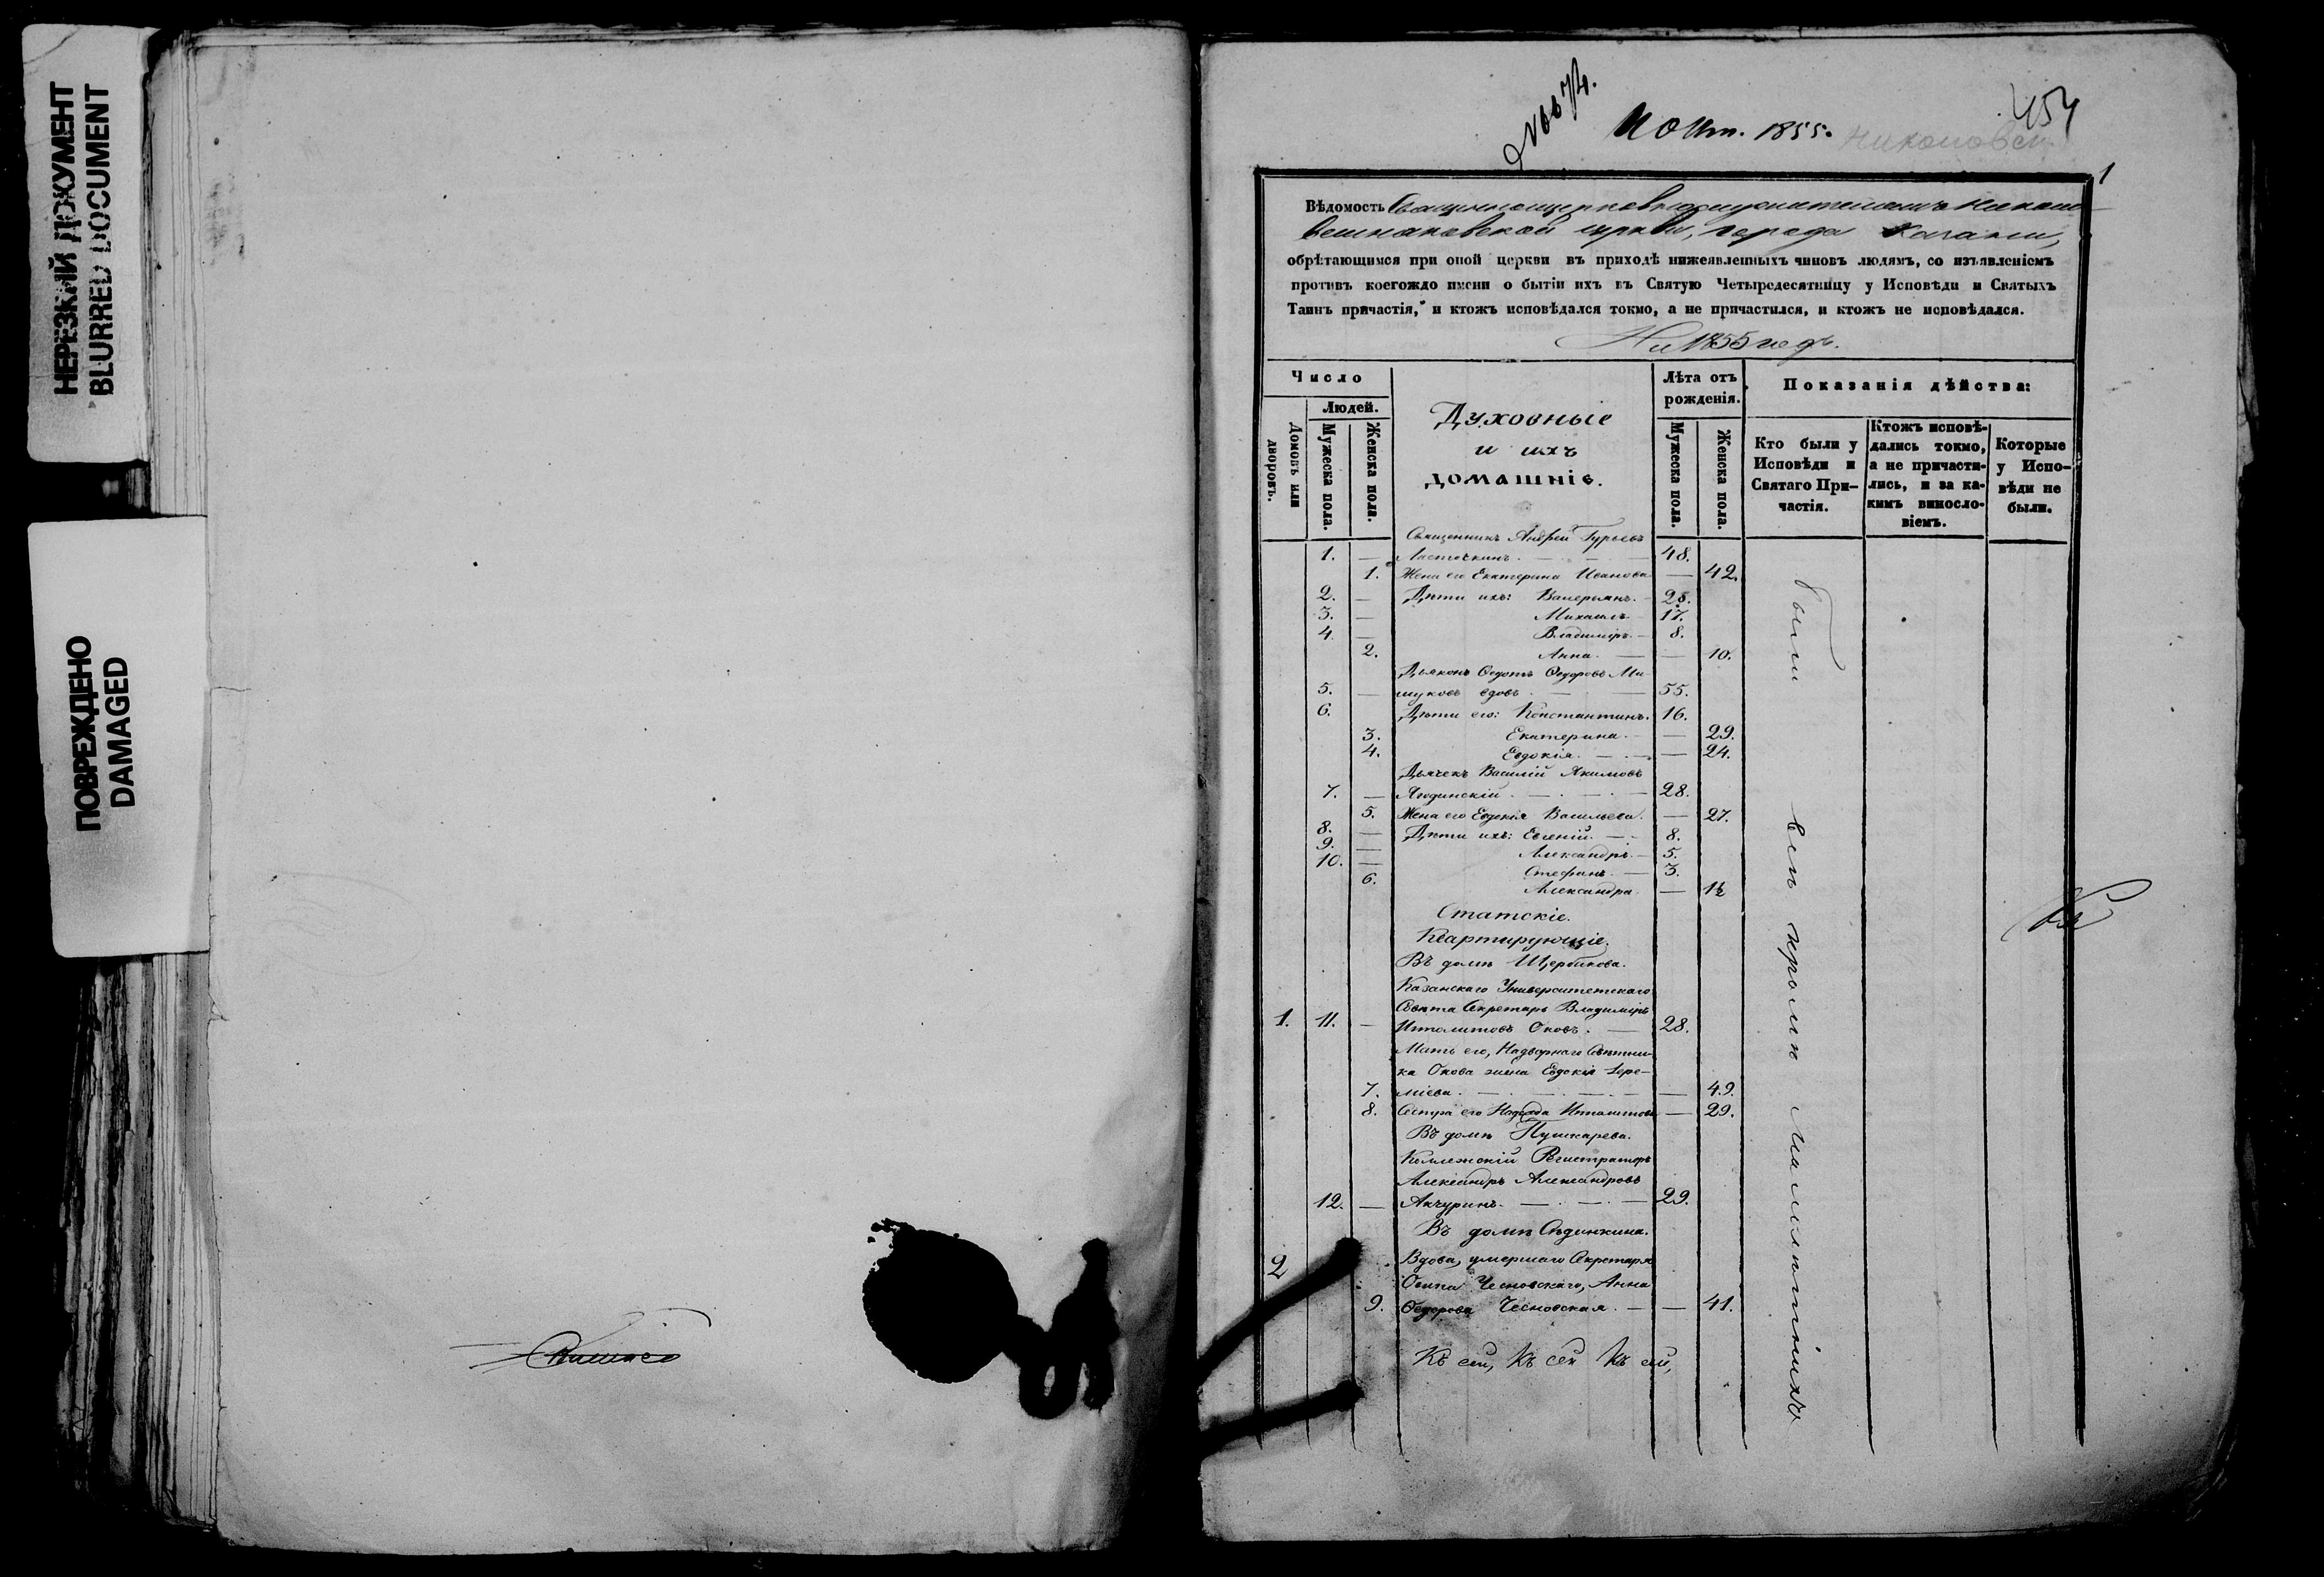 НЕРЕЗКИЙ ДОКУМЕНТ
BLURRED DOCUMENT
ПОВРЕЖДЕНО
DAMAGED
1855.
454
1
Вѣдомость
церкви, города Казани,
обрѣтающимся при оной церкви въ приходѣ нижеявленныхъ чиновъ людямъ, со изъявленіемъ
противъ коегождо имени о бытіи ихъ въ Святую Четыредесятницу у Исповѣди и Святыхъ
Таинъ причастія, и ктожъ исповѣдался токмо, а не причастился, и ктожъ не исповѣдался.
На 1855 годъ.
Число
Людей.
Домовъ или дворовъ.
Мужеска пола.
Женска пола.
Духовные
и ихъ
домашніе.
Лѣта отъ рожденія.
Мужеска пола.
Женска пола.
Показанія дѣйства:
Кто были у Исповѣди и Святаго Причастія.
Ктожъ исповѣдались токмо, а не причастились, и за какимъ винословіемъ.
Которые у Исповѣди не были.
Священникъ Андрей Гурьевъ
1. — Ласточкинъ. — 48.
1. Жена его Екатерина Иванова — 42.
2. — Дѣти ихъ: Валерьянъ. 28.
3. — Михаилъ 17.
4. — Владиміръ. — 8.
2. Анна. — — 10.
Дьяконъ Ѳедотъ Ѳедоровъ Ми-
5. — шуковъ вдовъ. — 55.
6. Дѣти его: Константинъ. 16.
3. Екатерина. — 29.
4. Евдокія. — — 24.
Дьячекъ Василій Акимовъ
7. — Ягодинскій. — 28.
5. Жена его Евдокія Васильева. — 27.
8. — Дѣти ихъ: Евгеній. — 8.
9. — Александръ. — 5.
10. — Стефанъ. — 3.
6. Александра. — 1½
Статскіе.
Квартирующіе.
Въ домѣ Щербакова.
Казанскаго Университетскаго
Совѣта Секретарь Владиміръ
1. 11. — Ипполитовъ Оковъ. — 28.
Мать его, Надворнаго Совѣтни-
ка Окова жена Евдокія Іере-
7. міева. — — 49.
8. Сестра его Надежда Ипполитова — 29.
Въ домѣ Пушкарева.
Коллежскій Регистраторъ
Александръ Александровъ
12. — Акчуринъ. — 29.
Въ домѣ
2 Вдова, умершаго Секретаря
Осипа Чесновскаго, Анна
9. Ѳедорова Чесновская. — — 41.
были всѣ кромѣ малолѣтнихъ